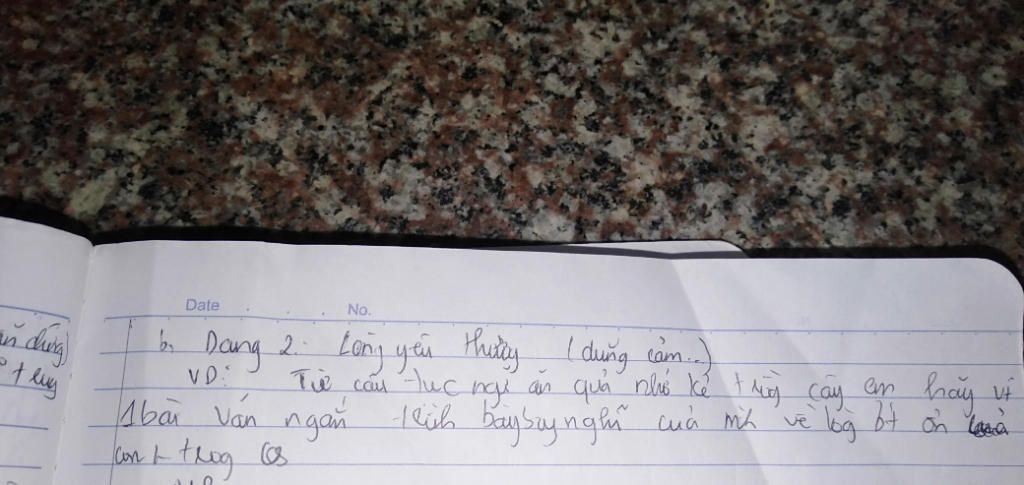 Date No.
b, Dạng 2: Lòng yêu thương (dũng cảm...)
VD: Từ câu tục ngữ ăn quả nhớ kẻ trồng cây em hãy vt
1 bài văn ngắn trình bày suy nghĩ của mh về lòg bt ơn
con trog cs
ăn dũng)